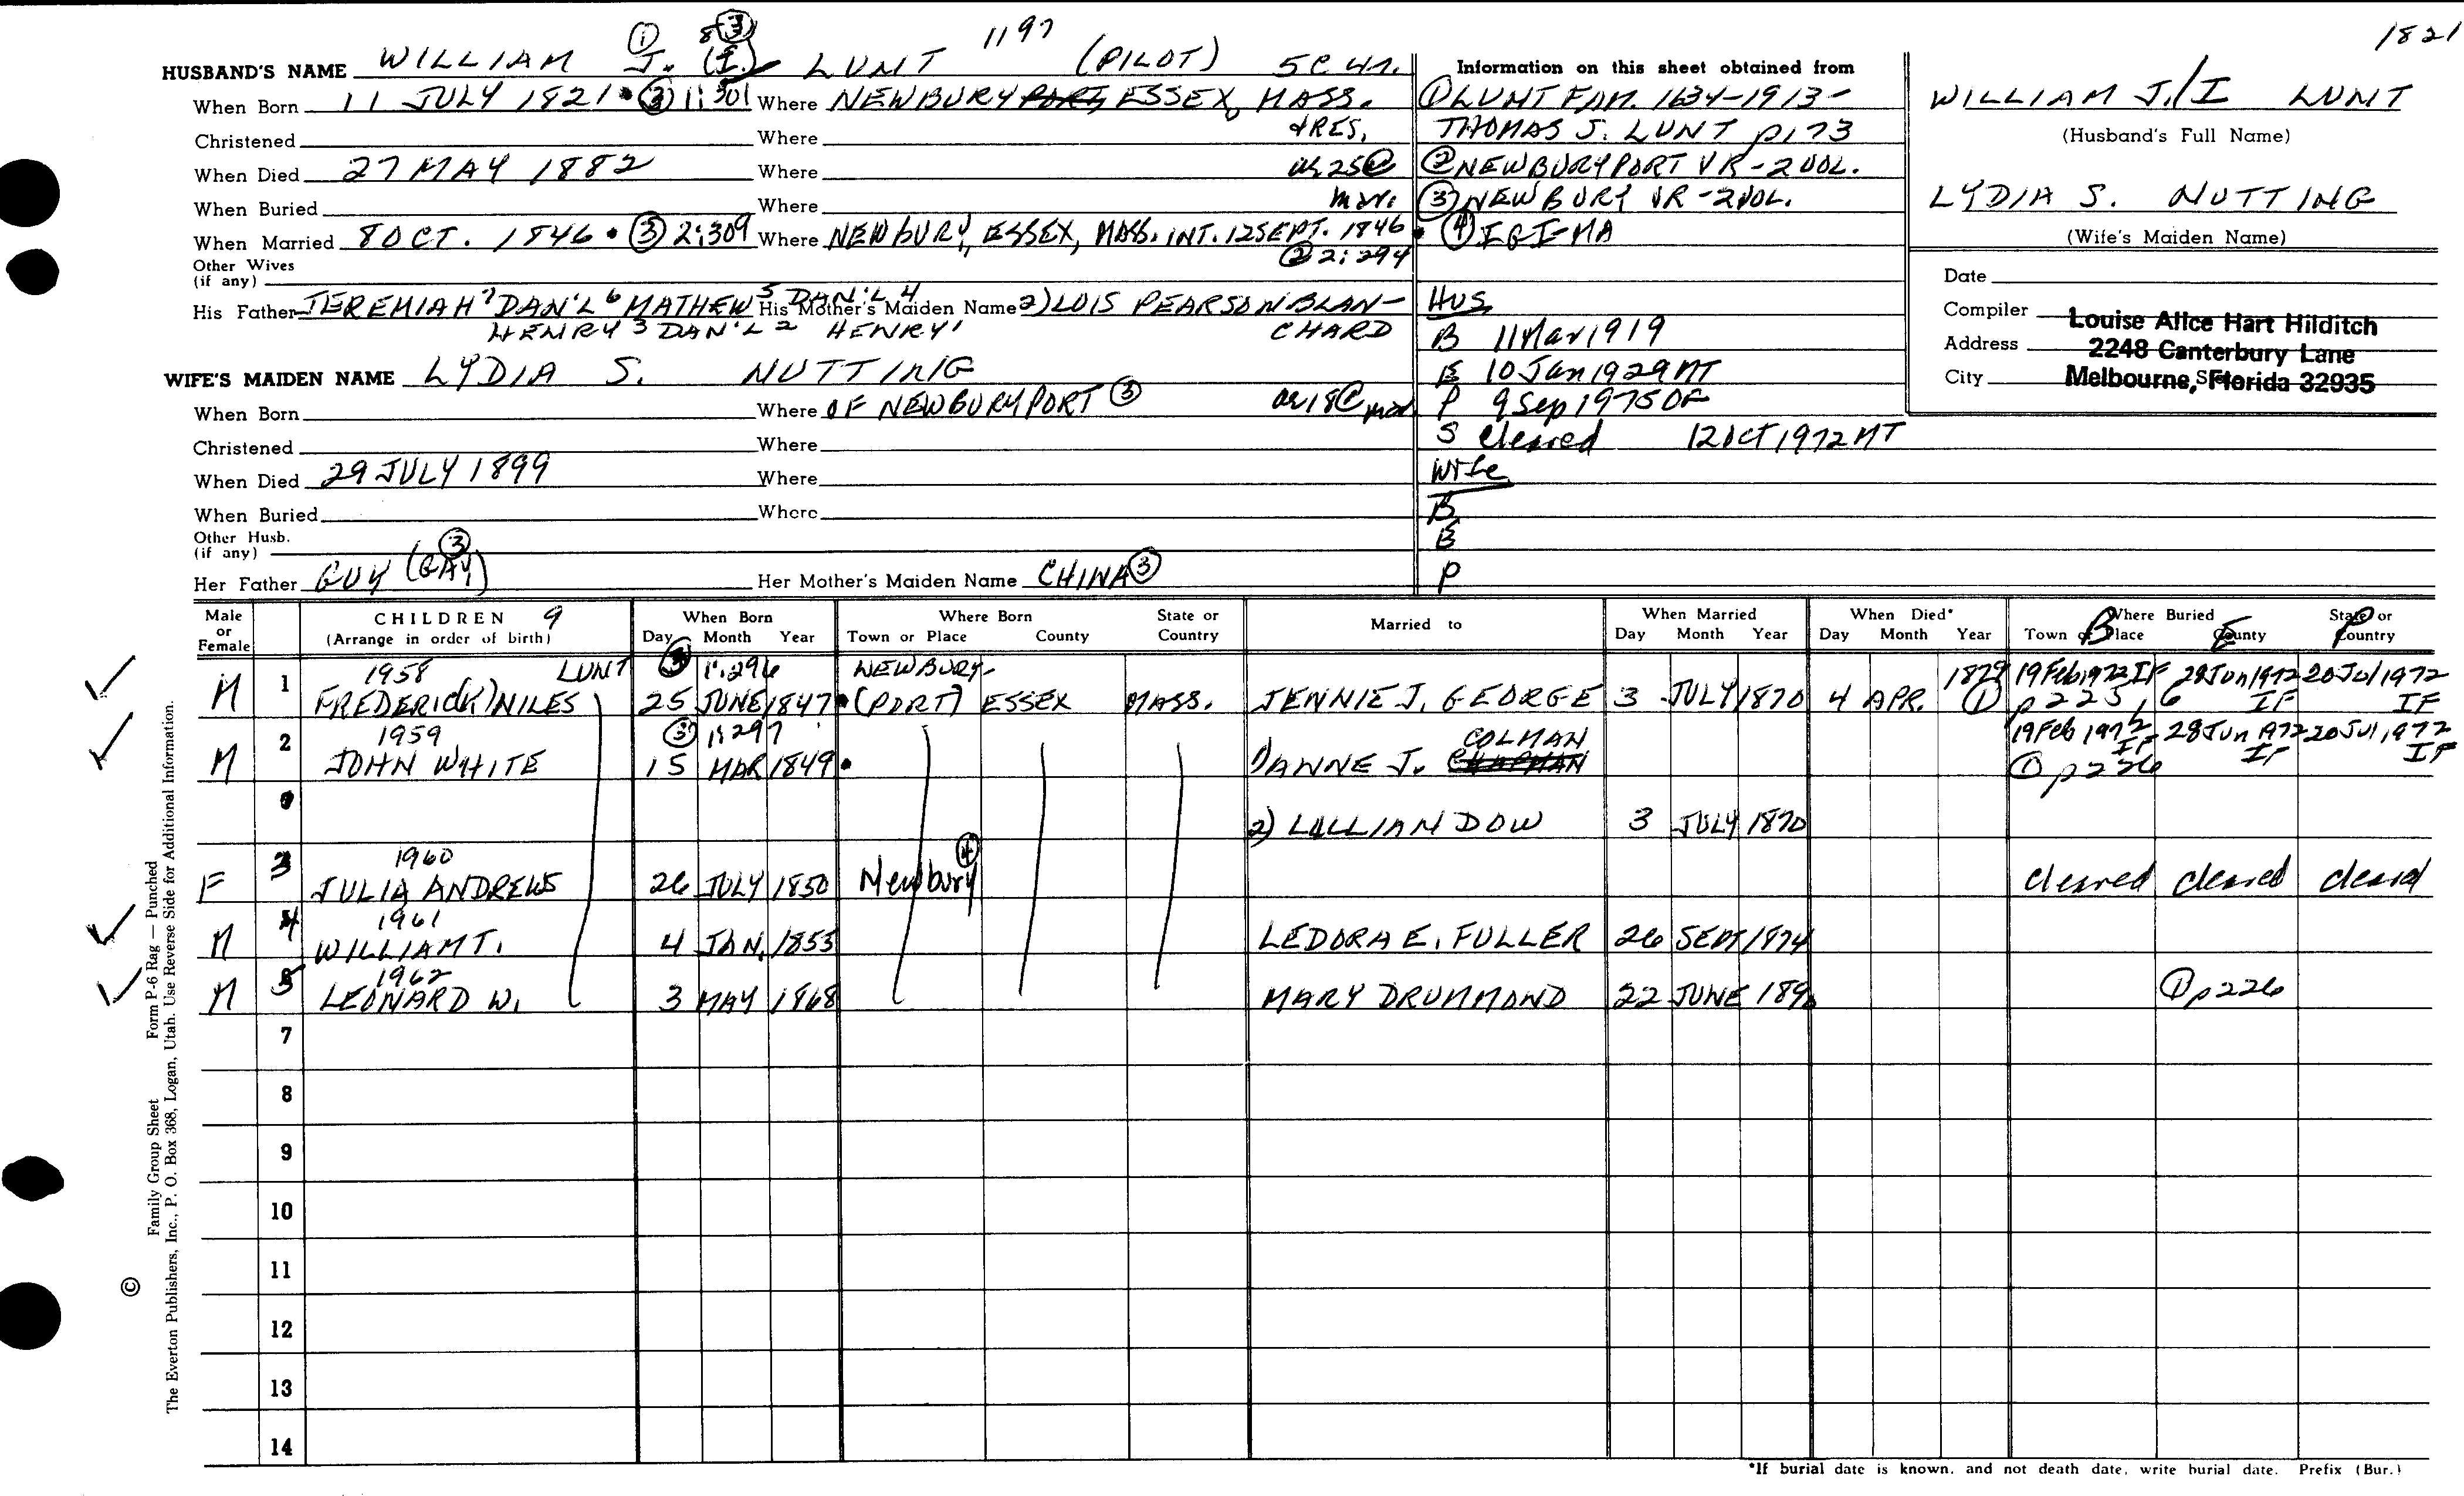 1821
HUSBAND'S NAME WILLIAM ① J. 8 ③ (I.) LUNT 1197 (PILOT) SC 41.
When Born 11 JULY 1821 • ③ 1:301 Where NEWBURYPORT, ESSEX, MASS.
Christened Where &RES.
When Died 27 MAY 1882 Where ae 25 @
When Buried Where mar.
When Married 8 OCT. 1846 • ③ 2:309 Where NEWBURY, ESSEX, MASS. INT. 12 SEPT. 1846 •
② 2:294
Other Wives
(if any)
His Father JEREMIAH 7 DAN'L 6 MATHEW 5 DAN'L 4 His Mother's Maiden Name 2) LOIS PEARSON BLAN-
HENRY 3 DAN'L 2 HENRY 1 CHARD
WIFE'S MAIDEN NAME LYDIA S. NUTTING
When Born Where OF NEWBURYPORT ③ ae 18 @ mar
Christened Where
When Died 29 JULY 1899 Where
When Buried Where
Other Husb.
(if any)
Her Father GUY (GAY) ③ Her Mother's Maiden Name CHINA ③
Information on this sheet obtained from
① LUNT FAM. 1634-1913-
THOMAS S. LUNT p173
② NEWBURYPORT VR - 2 VOL.
③ NEWBURY VR - 2 VOL.
④ IGI-MA
HUS
B 11 Mar 1919
E 10 Jan 1929 MT
P 9 Sep 1975 OF
S cleared 12 OCT 1972 MT
Wife
B
E
P
WILLIAM J./I LUNT
(Husband's Full Name)
LYDIA S. NUTTING
(Wife's Maiden Name)
Date
Compiler Louise Alice Hart Hilditch
Address 2248 Canterbury Lane
City Melbourne, Florida 32935
Male or Female CHILDREN 9 (Arrange in order of birth) When Born Day Month Year Where Born Town or Place County State or Country Married to When Married Day Month Year When Died* Day Month Year Where Buried Town or Place County State or Country B E P
1958 LUNT ③ 1:296 NEWBURY- 1879 19 Feb 1972 IF 28 Jun 1972 20 Jul 1972
M 1 FREDERIC(K) NILES 25 JUNE 1847 • (PORT) ESSEX MASS. JENNIE J. GEORGE 3 JULY 1870 4 APR. ① p 225, 6 IF IF
1959 ③ 1:297 COLMAN 19 Feb 1972 IF 28 Jun 1972 IF 20 Jul 1972 IF
M 2 JOHN WHITE 15 MAR 1849 • 1) ANNE J. CHAPMAN ① p 226
2) LILLIAN DOW 3 JULY 1870
1960 ④
F 3 JULIA ANDREWS 26 JULY 1850 Newbury cleared cleared cleared
1961
M 4 WILLIAM T. 4 JAN. 1853 LEDORA E. FULLER 26 SEPT 1874
1962
M 5 LEONARD W. 3 MAY 1868 MARY DRUMMOND 22 JUNE 189 ① p 226
7
8
9
10
11
12
13
14
*If burial date is known, and not death date, write burial date. Prefix (Bur.)
Family Group Sheet Form P-6 Rag — Punched
The Everton Publishers, Inc., P. O. Box 368, Logan, Utah. Use Reverse Side for Additional Information.
©